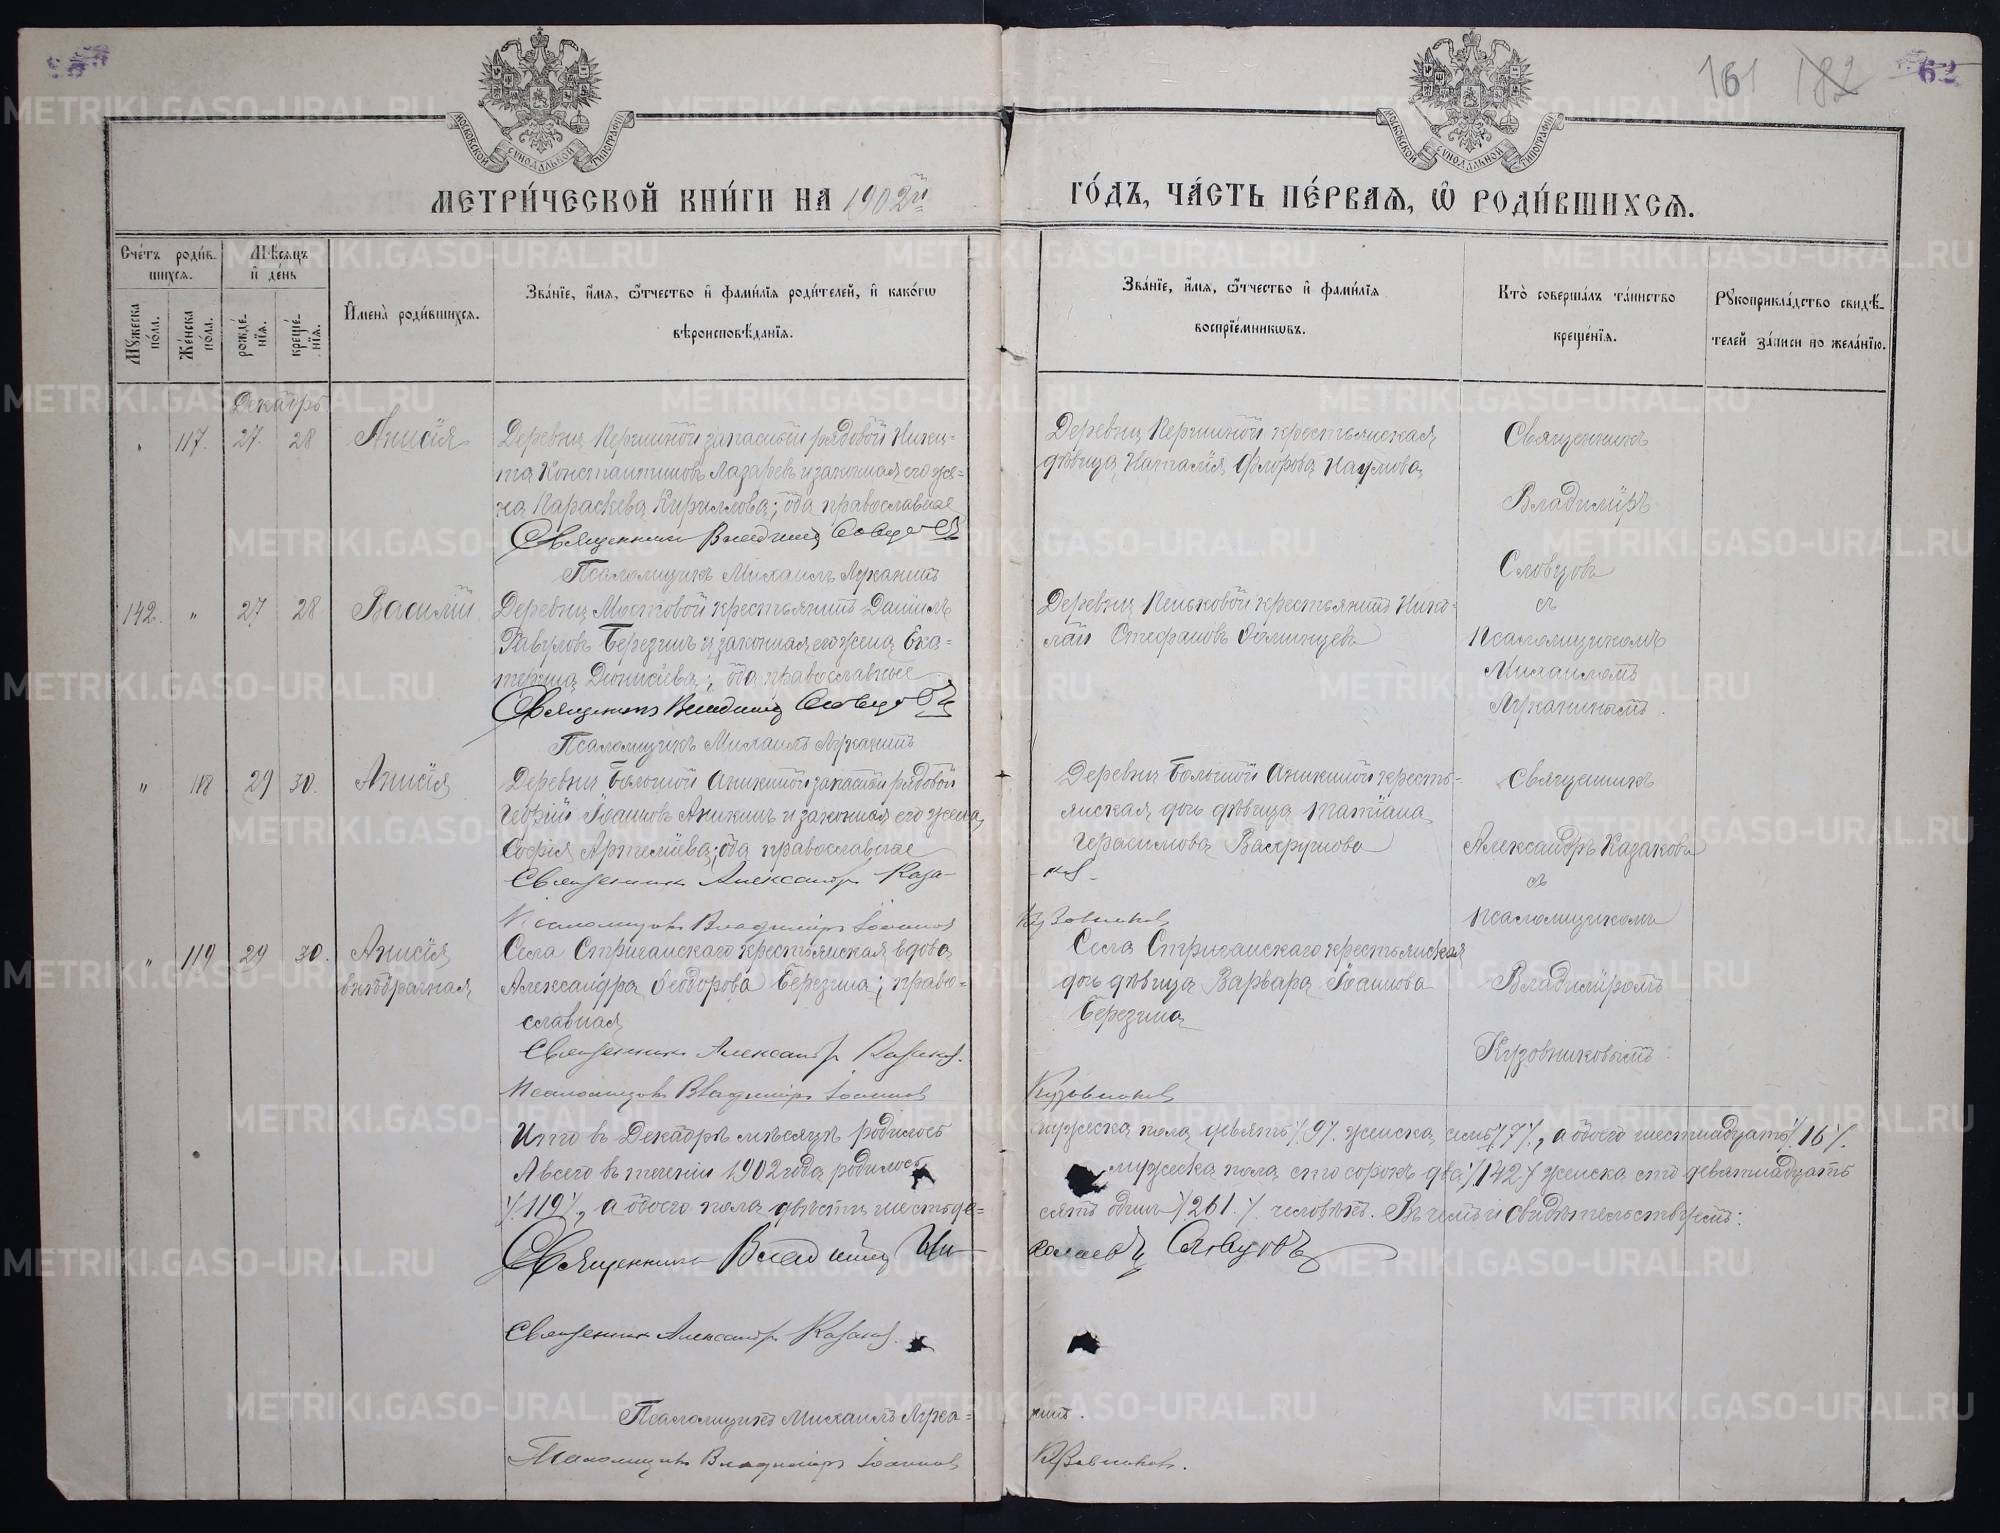 161 182 62
МОСКОВСКОЙ СУНОДАЛЬНОЙ ТИПОГРАФІИ
МОСКОВСКОЙ СУНОДАЛЬНОЙ ТИПОГРАФІИ
МЕТРИ́ЧЕСКОЙ КНИ́ГИ НА 1902й
ГО́ДЪ, ЧА́СТЬ ПЕ́РВАѦ, Ѡ҆ РОДИ́ВШИХСѦ.
Сче́тъ роди́в-
шихсѧ.
Мѣ́сѧцъ
и҆ де́нь
Мꙋ́жеска по́ла.
Же́нска по́ла.
рожде́-нїѧ.
креще́-нїѧ.
И҆мена̀ роди́вшихсѧ.
Зва́нїе, и҆́мѧ, ѻ҆́тчество и҆ фами́лїѧ роди́телей, и҆ како́гѡ
вѣроисповѣ́данїѧ.
Зва́нїе, и҆́мѧ, ѻ҆́тчество и҆ фами́лїѧ
воспрїе́мникѡвъ.
Кто̀ соверша́лъ та́инство
креще́нїѧ.
Рꙋкоприкла́дство свидѣ́-
телей за́писи по жела́нїю.
Декабрь
117. 27. 28 Анисія
Деревни Першиной запасный рядовой Ники-
та Константиновъ Лазаревъ и законная его же-
на Параскева Кириллова; оба православные
Священникъ Владимір Словцовъ
Псаломщикъ Михаилъ Луканинъ
Деревни Першиной крестьянская
дѣвица Наталія Флорова Наумова
Священникъ
Владиміръ
Словцовъ
съ
псаломщикомъ
Михаиломъ
Луканинымъ.
142. " 27 28 Василій
Деревни Мостовой крестьянинъ Даніилъ
Гавриловъ Березинъ и законная его жена Ека-
терина Діонисіева; оба православные
Священникъ Владимір Словцовъ
Псаломщикъ Михаилъ Луканинъ
Деревни Пеньковой крестьянинъ Нико-
лай Стефановъ Ѳоминцевъ
" 118 29 30. Анисія
Деревни Большой Аникиной запасный рядовой
Георгій Іоанновъ Аникинъ и законная его жена
Софія Артеміева; оба православные
Священникъ Александръ Каза-
ковъ
Псаломщикъ Владиміръ Іоанновъ
Кузовниковъ
Деревни Большой Аникиной кресть-
янская дочь дѣвица Татіана
Герасимова Вахрушова
Священникъ
Александръ Казаковъ
съ
псаломщикомъ
Владиміромъ
Кузовниковымъ.
" 119 29 30. Анисія
внѣбрачная
Села Стриганскаго крестьянская вдова
Александра Ѳеодорова Березина; право-
славная
Священникъ Александръ Казаковъ.
Псаломщикъ Владиміръ Іоанновъ
Кузовниковъ
Села Стриганскаго крестьянская
дочь дѣвица Варвара Іоаннова
Березина
Итого въ Декабрѣ мѣсяцѣ родилось
мужеска пола девять /9/. женска семь /7/, а обоего шестнадцать /16/.
А всего въ теченіи 1902 года родилось
мужеска пола сто сорокъ два /142/ женска сто девятнадцать
/119/, а обоего пола двѣсти шестьде-
сятъ одинъ /261/. человѣкъ. Въ чемъ и свидѣтельствуемъ:
Священникъ Владимір Ни-
колаевъ Словцовъ
Священникъ Александръ Казаковъ.
Псаломщикъ Михаилъ Лука-
нинъ.
Псаломщикъ Владиміръ Іоанновъ
Кузовниковъ.
METRIKI.GASO-URAL.RU